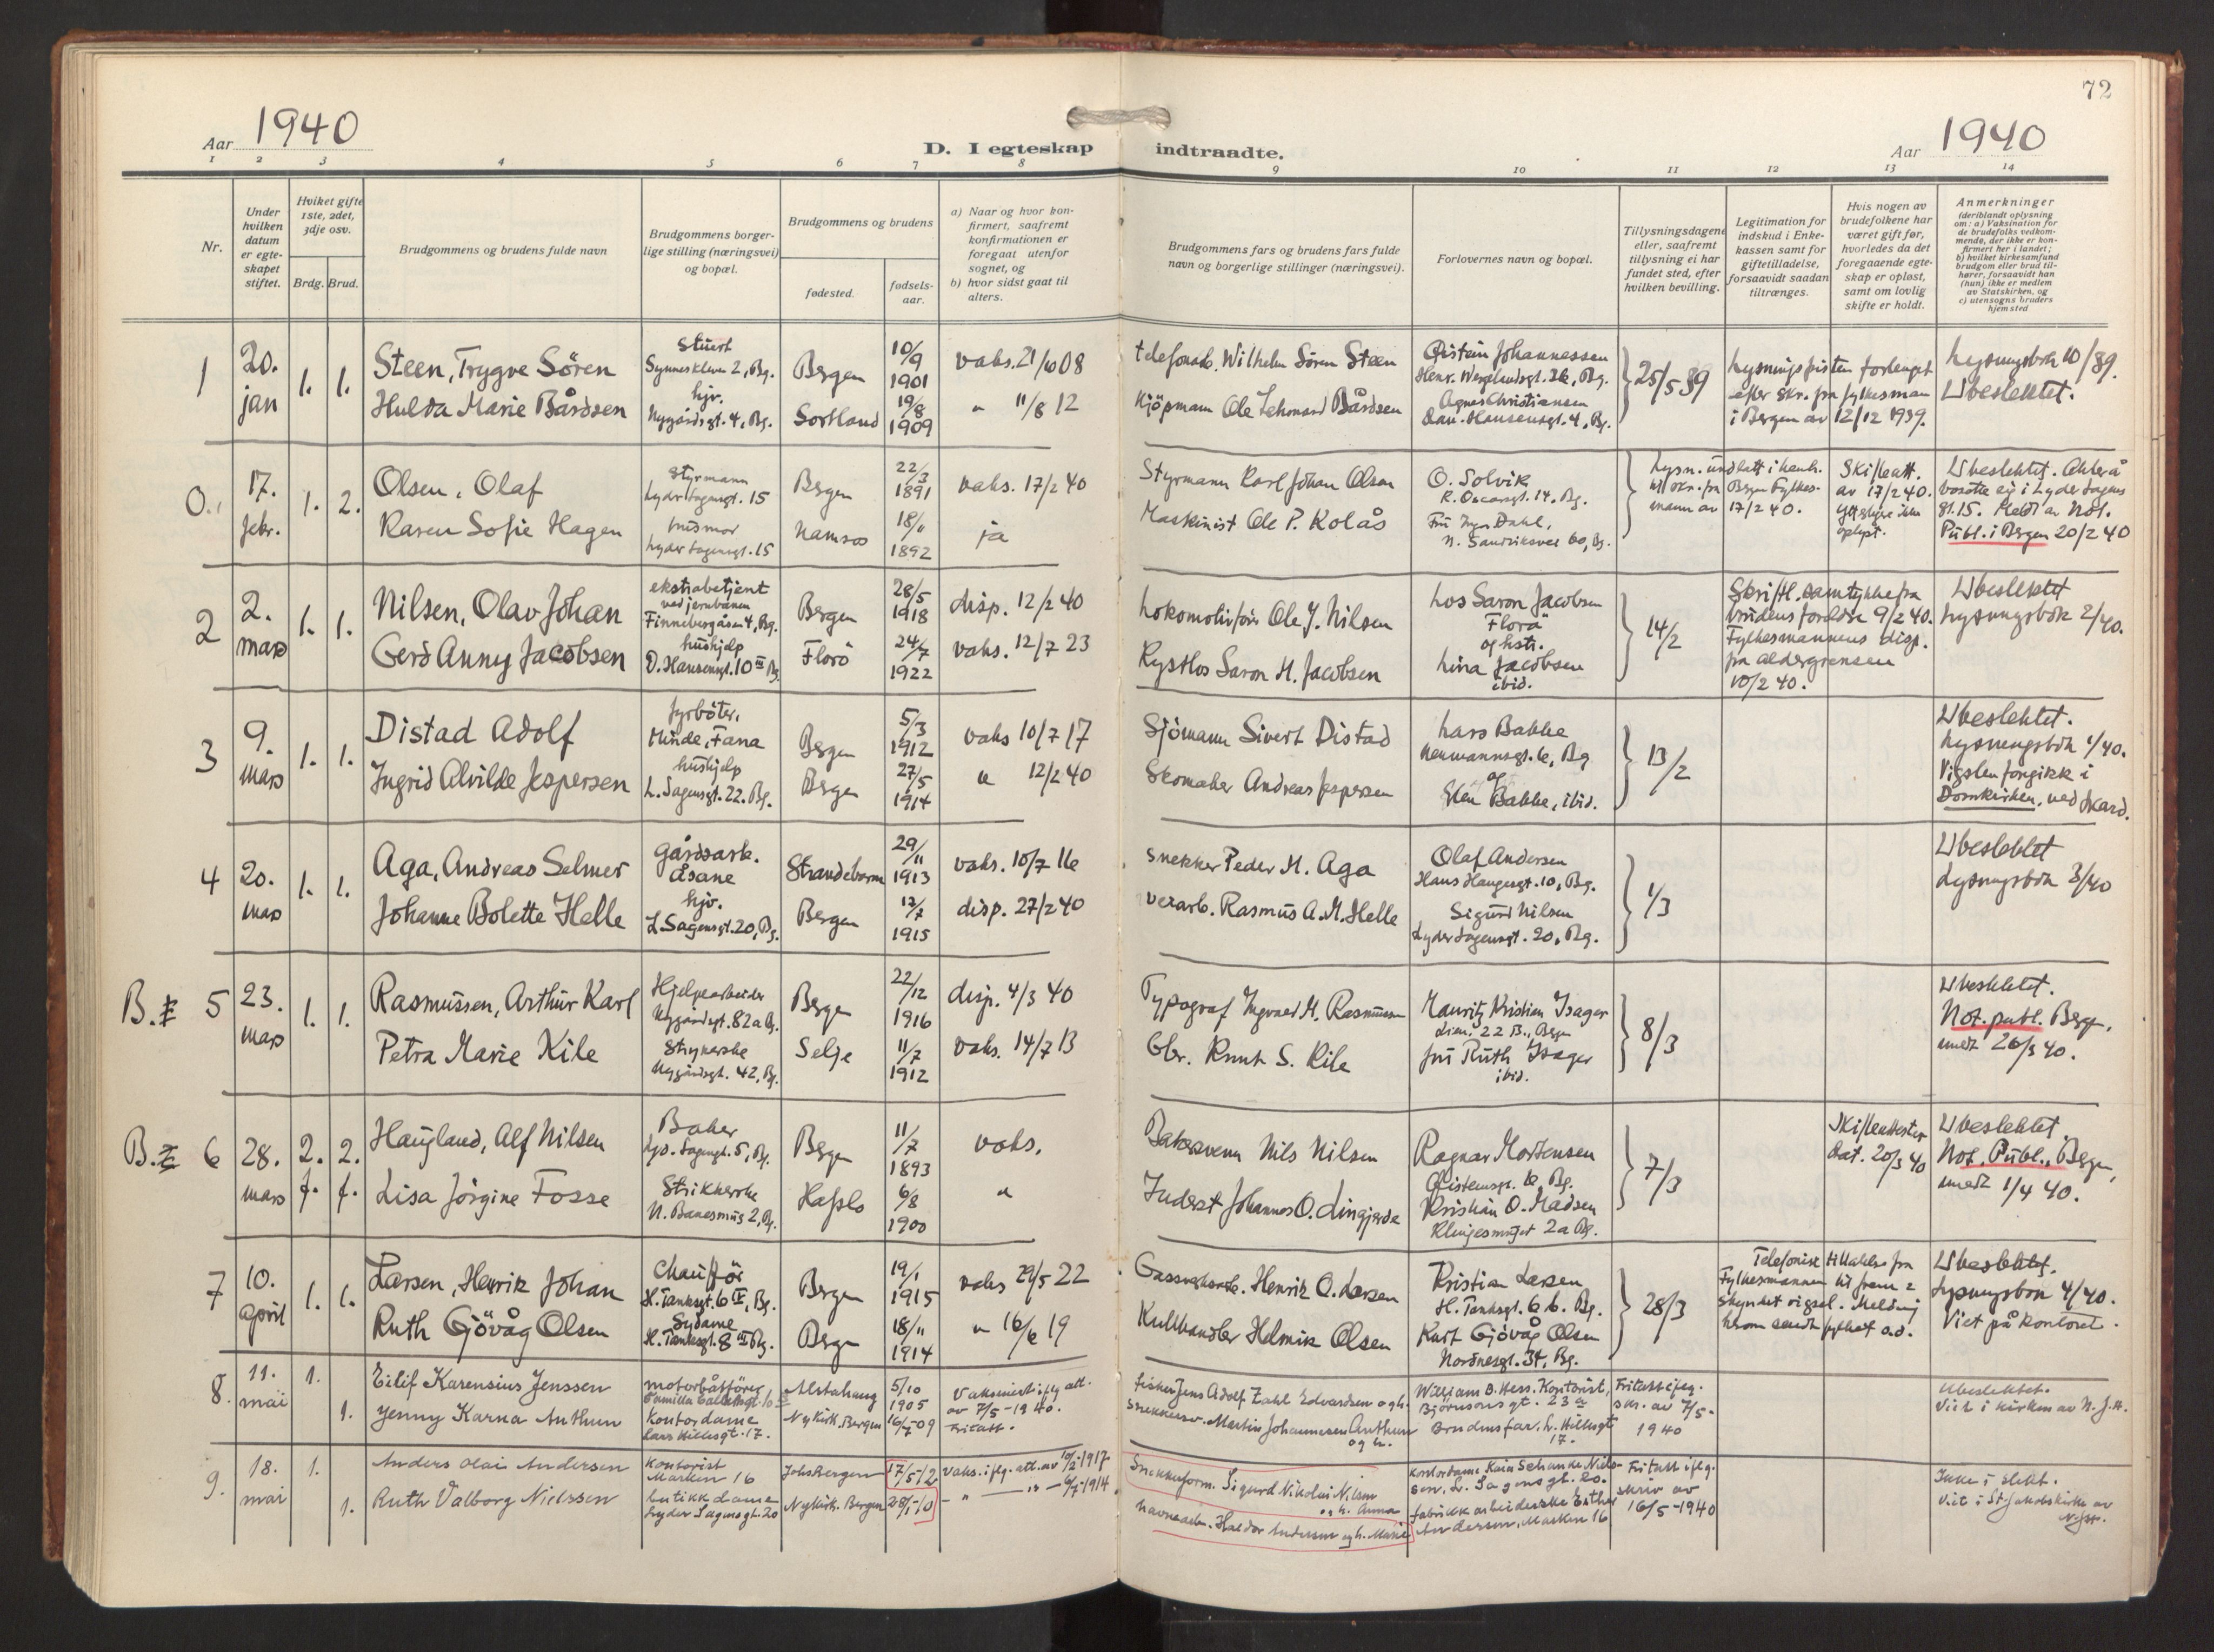 72
Aar 1940
D. I egteskap indtraadte.
Aar 1940
1 2 3 4 5 6 7 8 9 10 11 12 13 14
Nr.
Under hvilken datum er egteskapet stiftet.
Hviket gifte 1ste, 2det, 3dje osv.
Brdg. Brud.
Brudgommens og brudens fulde navn
Brudgommens borgerlige stilling (næringsvei) og bopæl.
Brudgommens og brudens
fødested.
fødselsaar.
a) Naar og hvor konfirmert, saafremt konfirmationen er foregaat utenfor sognet, og
b) hvor sidst gaat til alters.
Brudgommens fars og brudens fars fulde navn og borgerlige stillinger (næringsvei).
Forlovernes navn og bopæl.
Tillysningsdagene eller, saafremt tillysning ei har fundet sted, efter hvilken bevilling.
Legitimation for indskud i Enkekassen samt for giftetilladelse, forsaavidt saadan tiltrænges.
Hvis nogen av brudefolkene har været gift før, hvorledes da det foregaaende egteskap er opløst, samt om lovlig skifte er holdt.
Anmerkninger
(deriblandt oplysning om: a) Vaksination for de brudefolks vedkommende, der ikke er konfirmert her i landet; b) hvilket kirkesamfund brudgom eller brud tilhører, forsaavidt han (hun) ikke er medlem av Statskirken, og c) utensogns bruders hjemsted
1 20. jan 1. 1.
Steen, Trygve Sören
Stuert
Synneskleven 2, Bg.
Bergen 10/9 1901
vaks. 21/10 08
telefonarb. Wilhelm Sören Steen
Øistein Johannessen
Henr. Wergelandsgt. 26, Bg.
25/5 39
lysningsfristen forlenget efter skr. fra fylkesman i Bergen av 12/12 1939.
lysningsbok 10/39.
Ubeslektet.
Hulda Marie Bårdsen
hjv.
Nygårdsgt. 4, Bg.
Sortland 19/8 1909
" 11/8 12
Kjöpmann Ole Lehonard Bårdsen
Agnes Christiansen
Dan. Hansensgt. 4, Bg.
0. 17. febr. 1. 2.
Olsen, Olaf
Styrmann
Lyder Sagensgt. 15
Bergen 22/3 1891
vaks. 17/2 40
Styrmann Karl Johan Olsen
O. Solvik
R. Oscarsgt. 14, Bg.
lysn. undlatt i henh. til skr. fra Bergen Fylkesmann av 17/2 40.
Skilleatt. av 17/2 40.
Ubeslektet. Akter å bosette sig i Lyder Sagens gt. 15. Meldt av Not. Publ. i Bergen 20/2 40
Karen Sofie Hagen
husmor
Lyder Sagensgt. 15
Namsos 18/11 1892
ja
Maskinist Ole P. Kolås
Fru Inga Dahl,
N. Sandviksvei 60, Bg.
2 2. mars 1. 1.
Nilsen, Olav Johan
ekstrabetjent ved jernbanen
Finnebergåsen 4, Bg.
Bergen 28/5 1918
disp. 12/2 40
Lokomotivförer Ole J. Nilsen
Los Saron Jacobsen
Florö
og hstr.
14/2
Skriftl. samtykke fra brudens foreldre 9/2 40.
Fylkesmannens disp. fra aldergrensen 10/2 40.
Ubeslektet
lysningsbok 2/40.
Gerd Anny Jacobsen
hushjelp
D. Hansensgt. 10 III Bg.
Florö 24/7 1922
vaks. 12/7 23
Kystlos Saron H. Jacobsen
Lina Jacobsen
ibid.
3 9. mars 1. 1.
Distad Adolf
fyrböter,
Minde, Fana
Bergen 5/3 1912
vaks 10/7 17
Sjömann Sivert Distad
Lars Bakke
Neumannsgt. 6, Bg
og
13/2
Ubeslektet.
lysningsbok 1/40.
Vigslen foregikk i Domkirken, ved Skard.
Ingrid Alvilde Jespersen
hushjelp
L. Sagensgt. 22. Bg.
Bergen 27/5 1914
" 12/2 40
Skomaker Andreas Jespersen
Elen Bakke, ibid.
4 20. mars 1. 1.
Aga, Andreas Selmer
gårdsarb.
Åsane
Strandebarm 29/11 1913
vaks. 10/7 16
Snekker Peder H. Aga
Olaf Andersen
Hans Haugesgt. 10, Bg.
1/3
Ubeslektet
Lysningsbok 3/40
Johanne Bolette Helle
hjv.
L. Sagensgt. 20, Bg.
Bergen 12/7 1915
disp. 27/2 40
verarb. Rasmus A. M. Helle
Sigurd Nilsen
Lyder Sagensgt. 20, Bg.
B. 5 23. mars 1. 1.
Rasmussen, Arthur Karl
Hjelpearbeider
Nygårdsgt. 82a Bg.
Bergen 22/12 1916
disp. 4/3 40
Typograf Ingvald M. Rasmussen
Mauritz Kristian Isager
8/3
Ubeslektet.
Not. publ. Berg. meldt 26/3 40.
Petra Marie Kile
Strykerske
Nygårdsgt. 42, Bg.
Selje 11/7 1912
vaks. 14/7 13
Gbr. Knut S. Kile
fru Ruth Isager
ibid.
B. 6 28. mars 2. g. 2. g.
Haugland, Alf Nilsen
Baker
Lyd. Sagensgt. 5, Bg.
Bergen 11/7 1893
vaks.
Bakersvenn Nils Nilsen
Ragnar Mortensen
Øisteinsgt. 6, Bg.
7/3
Skilleattester dat. 20/3 40
Ubeslektet
Not. Publ., Bergen, meldt 1/4 40.
Lisa Jörgine Fosse
Strikkerske
N. Banesmug 2, Bg.
Hafslo 6/8 1900
"
Inderst Johannes O. Lingjerde
Kristian O. Madsen
Klingesmuget 2a Bg.
7 10. april 1. 1.
Larsen, Henrik Johan
Chauffør
H. Tanksgt. 6 IV, Bg.
Bergen 19/1 1915
vaks 29/5 22
Gassverksarb. Henrik O. Larsen
Kristian Larsen
H. Tanksgt. 6 b. Bg.
28/3
Telefonisk tillatelse fra Fylkesmannen til fremskyndet vigsel. Melding herom sendt fylket s.d.
Ubeslektet.
lysningsbok 4/40.
Viet på kontoret.
Ruth Gjövåg Olsen
Sydame
H. Tanksgt. 8 III Bg.
Bergen 18/11 1914
" 16/6 19
Kullhandler Helmik Olsen
Kurt Gjövåg Olsen
Nordnesgt. 34, Bg.
8. 11. mai 1. 1.
Eilif Karensius Jenssen
motorbåtförer
Alstahaug 5/10 1905
Vaksinert iflg att. av 7/5-1940.
fisker Jens Adolf Zahl Edvardsen og h.
William B. Hess. Kontorist,
Björnsonsgt. 23
Fritatt iflg. skr. av 7/5-1940
Ubeslektet.
Viet i kirken av N. J. H.
Jenny Karna Anthun
kontordame
Lars Hillesgt. 17.
Nykirk. Bergen 16/7-09
Fritatt.
Snekkersv. Martin Johannesen Anthun og h.
Brudens far. L. Hillesgt 17.
9. 18. mai 1. 1.
Anders Olai Andersen
Kontorist
Marken 16
Joh. Bergen 17/5-12
Vaks. iflg. att. av 10/2-1917
Snekkerform. Sigurd Nikolai Nilsen og h. Anna
Kontordame Karin Schanke Nielssen, L. Sagensgt. 20.
Fritatt iflg. skriv av 16/5-1940
Ikke i slekt.
Viet i St. Jakobs kirke av
Ruth Valborg Nielssen
butikkdame
Lyder Sagensgt. 20
Nykirk. Bergen 28/1-10
" 6/7-1914
havnearb. Haldor Andersen og h. Marie
fabrikkarbeiderske Esther Andersen, Marken 16